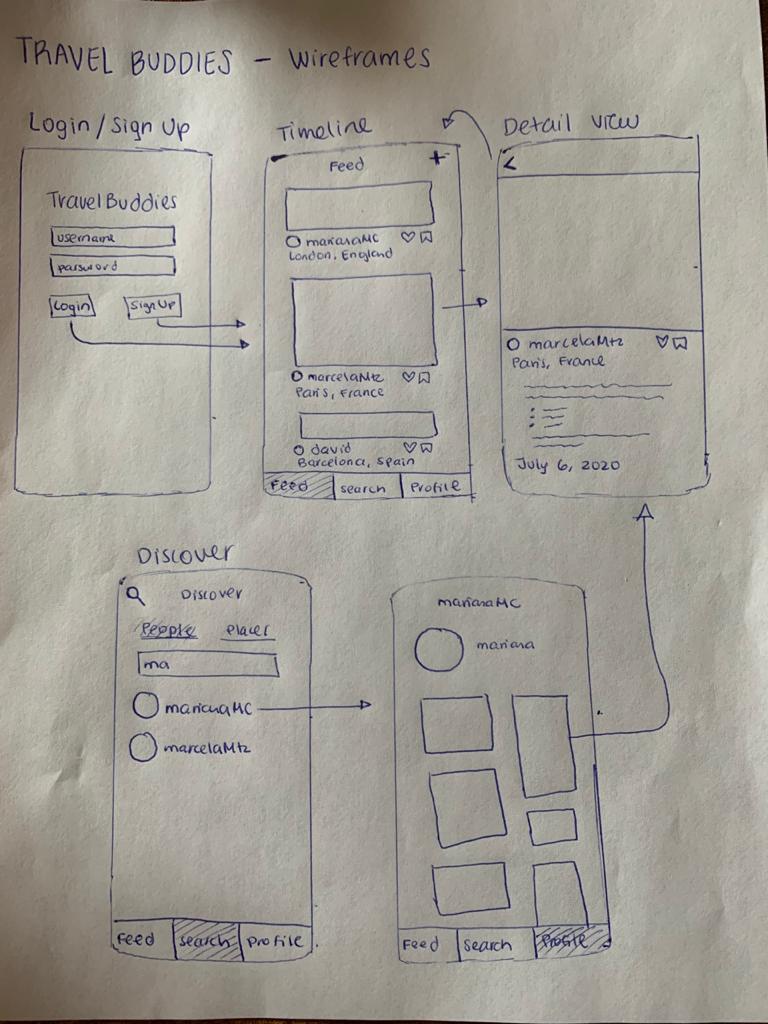 TRAVEL BUDDIES - Wireframes
Login/Sign Up
TravelBuddies
username
password
Login
Sign Up
Timeline
Feed +
marianaMC
London, England
marcelaMtz
Paris, France
david
Barcelona, Spain
Feed search Profile
Detail View
<
marcelaMtz
Paris, France
July 6, 2020
Discover
Discover
People Places
ma
marianaMC
marcelaMtz
Feed search profile
marianaMC
mariana
Feed Search Profile